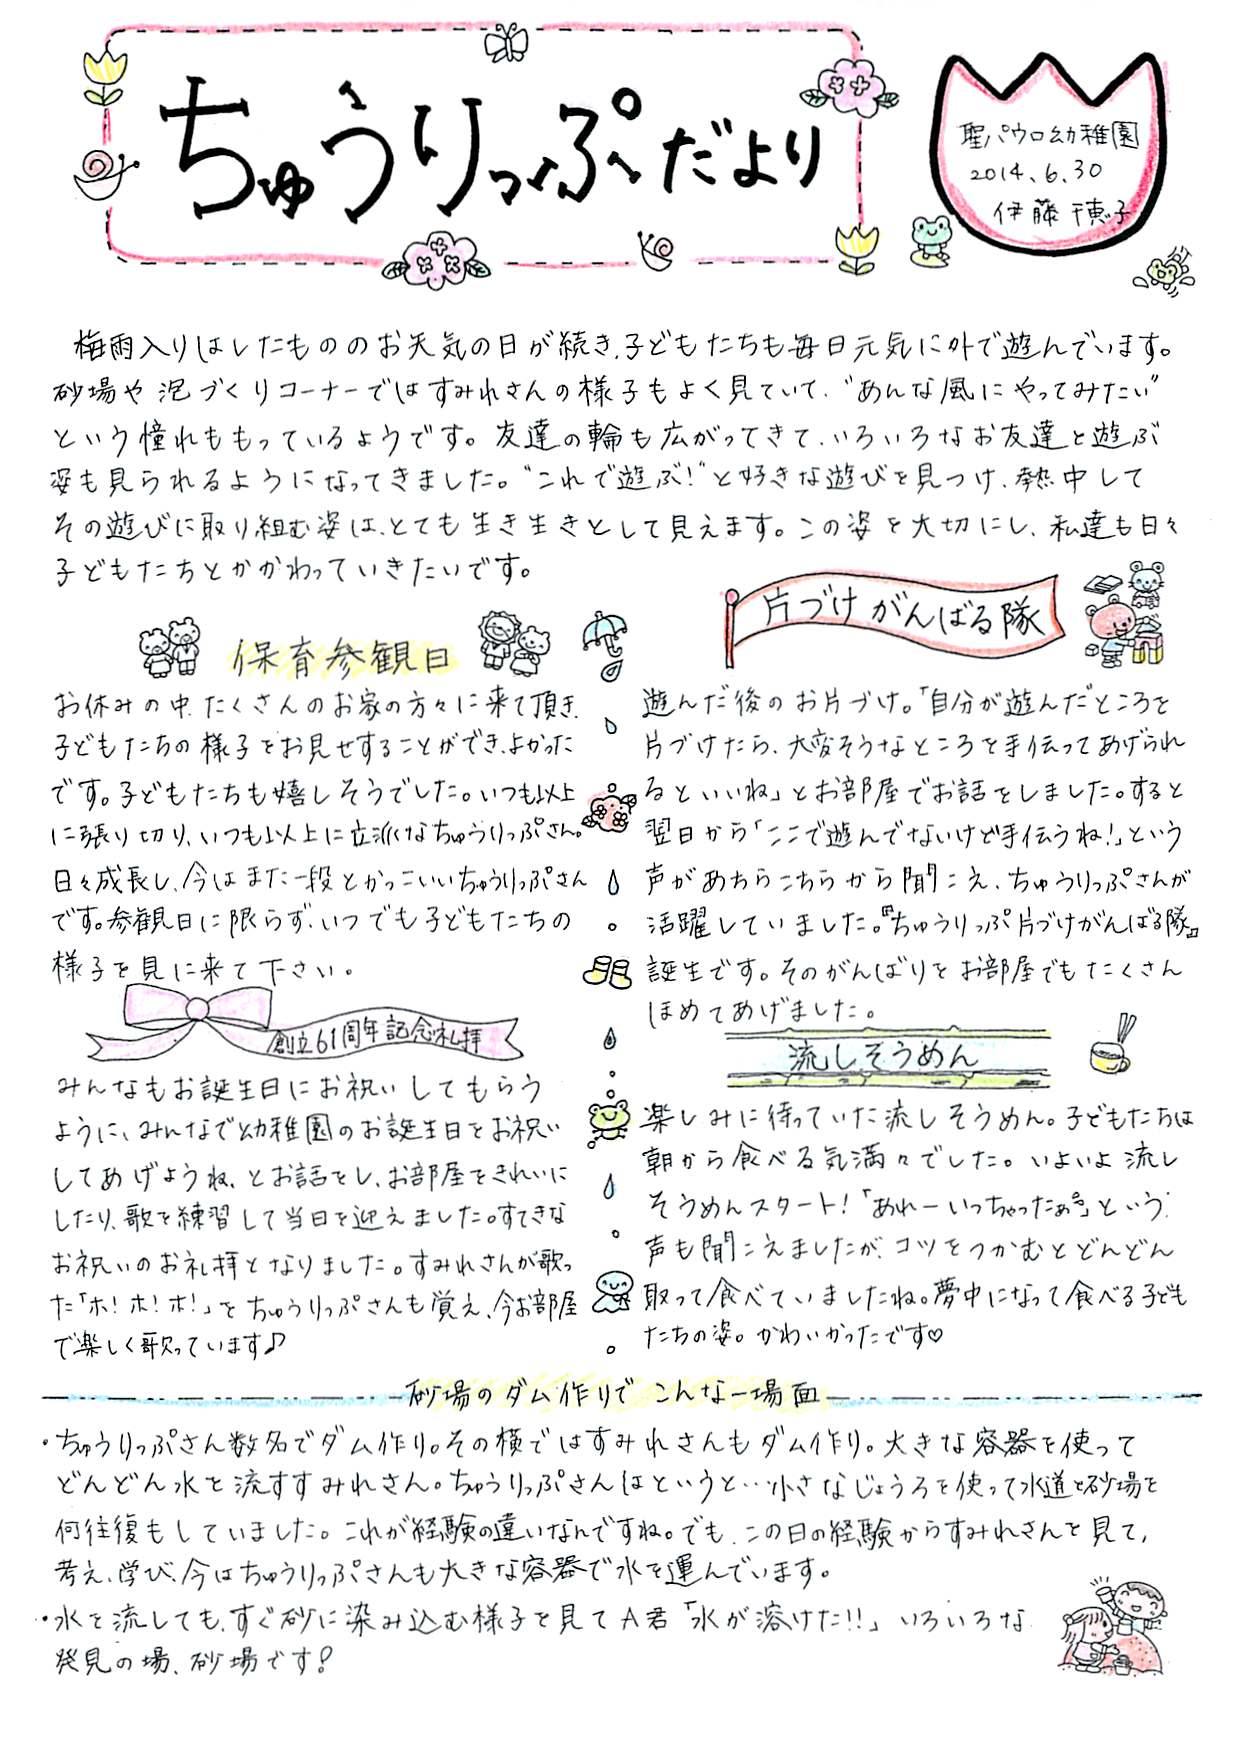 ちゅうりっぷだより
聖パウロ幼稚園
2014.6.30
伊藤千恵子
梅雨入りはしたもののお天気の日が続き、子どもたちも毎日元気に外で遊んでいます。
砂場や泥づくりコーナーではすみれさんの様子もよく見ていて、“あんな風にやってみたい”
という憧れももっているようです。友達の輪も広がってきて、いろいろなお友達と遊ぶ
姿も見られるようになってきました。“これで遊ぶ!”と好きな遊びを見つけ、熱中して
その遊びに取り組む姿は、とても生き生きとして見えます。この姿を大切にし、私達も日々
子どもたちとかかわっていきたいです。
保育参観日
お休みの中、たくさんのお家の方々に来て頂き、
子どもたちの様子をお見せすることができ、よかった
です。子どもたちも嬉しそうでした。いつも以上
に張り切り、いつも以上に立派なちゅうりっぷさん。
日々成長し、今はまた一段とかっこいいちゅうりっぷさん
です。参観日に限らず、いつでも子どもたちの
様子を見に来て下さい。
創立61周年記念礼拝
みんなもお誕生日にお祝いしてもらう
ように、みんなで幼稚園のお誕生日をお祝い
してあげようね、とお話をし、お部屋をきれいに
したり、歌を練習して当日を迎えました。すてきな
お祝いのお礼拝となりました。すみれさんが歌っ
た「ホ!ホ!ホ!」をちゅうりっぷさんも覚え、今お部屋
で楽しく歌っています♪
片づけがんばる隊
遊んだ後のお片づけ。「自分が遊んだところを
片づけたら、大変そうなところを手伝ってあげられ
るといいね」とお部屋でお話をしました。すると
翌日から「ここで遊んでないけど手伝うね!」という
声があちらこちらから聞こえ、ちゅうりっぷさんが
活躍していました。『ちゅうりっぷ片づけがんばる隊』
誕生です。そのがんばりをお部屋でもたくさん
ほめてあげました。
流しそうめん
楽しみに待っていた流しそうめん。子どもたちは
朝から食べる気満々でした。いよいよ流し
そうめんスタート!「あれーいっちゃったぁ。」という
声も聞こえましたが、コツをつかむとどんどん
取って食べていましたね。夢中になって食べる子ども
たちの姿。かわいかったです♡
砂場のダム作りでこんな一場面
・ちゅうりっぷさん数名でダム作り。その横ではすみれさんもダム作り。大きな容器を使って
どんどん水を流すすみれさん。ちゅうりっぷさんはというと…小さなじょうろを使って水道と砂場を
何往復もしていました。これが経験の違いなんですね。でも、この日の経験からすみれさんを見て、
考え、学び、今はちゅうりっぷさんも大きな容器で水を運んでいます。
・水を流しても、すぐ砂に染み込む様子を見てA君「水が溶けた!!」いろいろな
発見の場、砂場です!